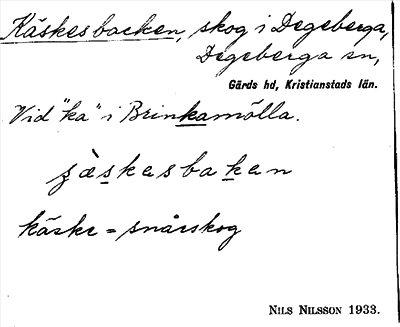 Käskesbacken, skog i Degeberga,
Degeberga sn,
Gärds hd, Kristianstads län.
Vid "ka" i Brinkamölla.
ʒæ̀skesbaken
käske = snårskog
NILS NILSSON 1933.